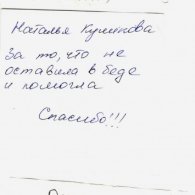 Наталья Куликова
За то, что не
оставила в беде
и помогла
Спасибо!!!